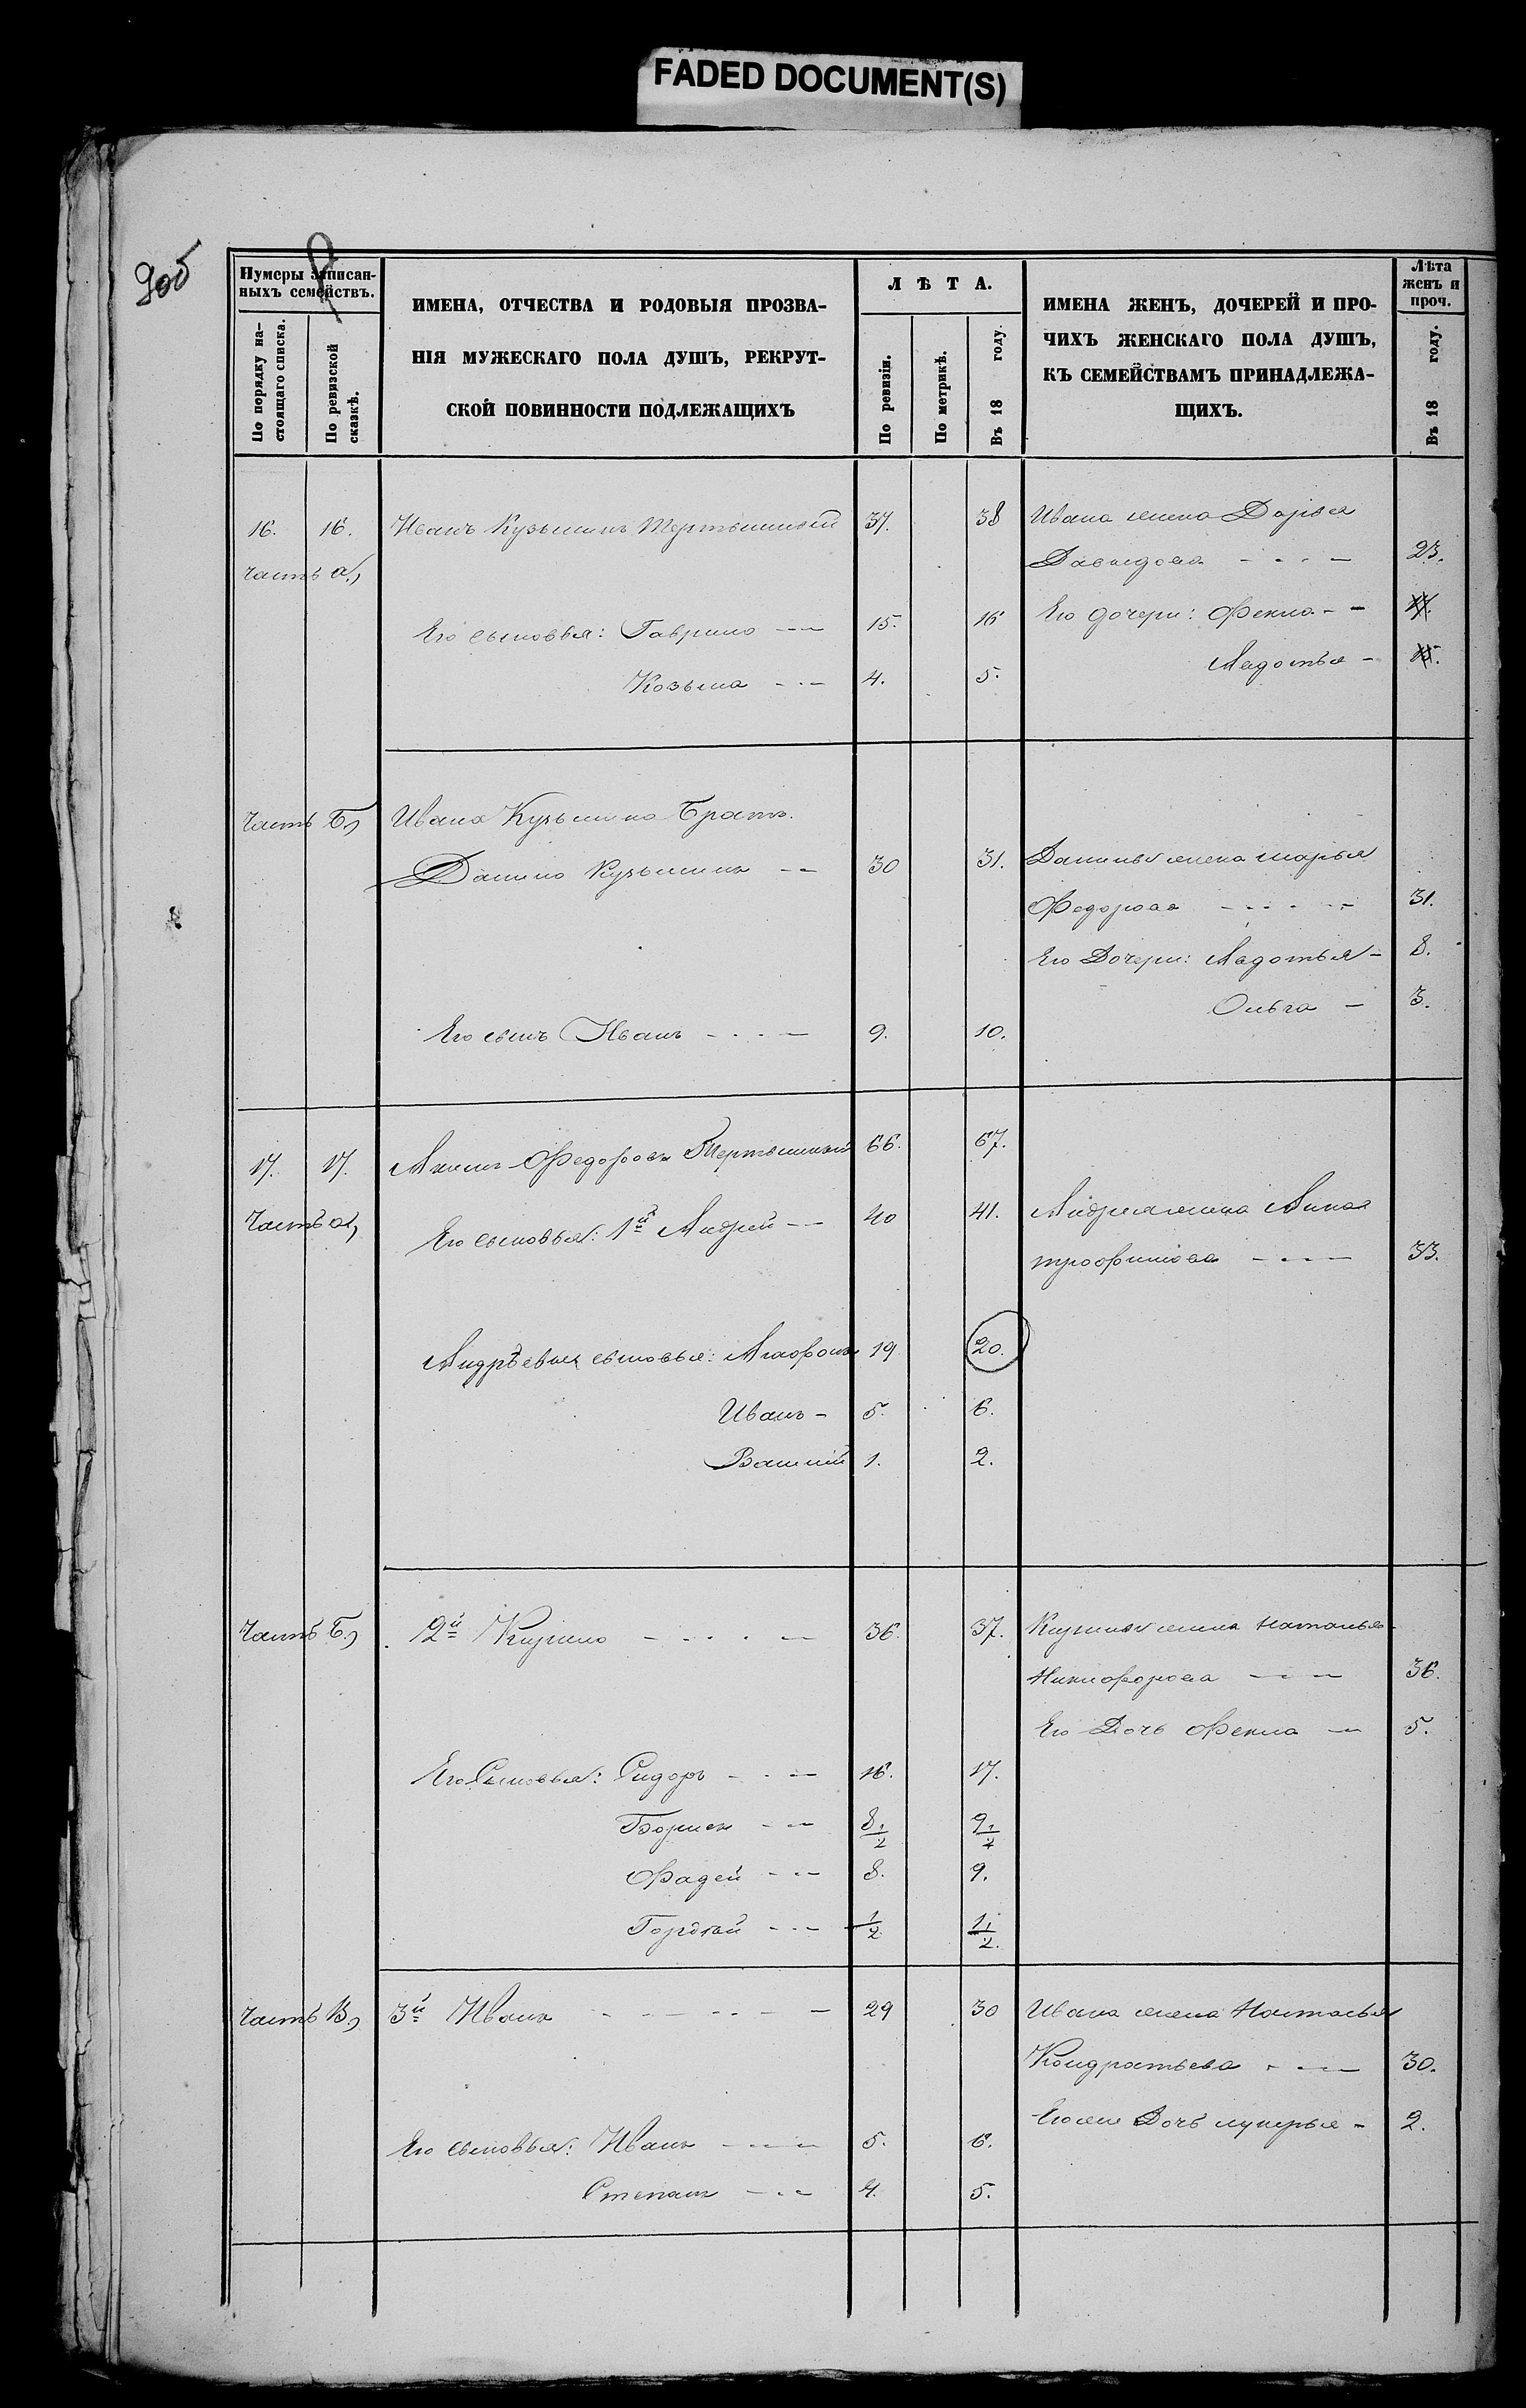 FADED DOCUMENT(S)
Нумеры записан-
ныхъ семействъ.
По порядку на-
стоящаго списка.
По ревизской
сказкѣ.
ИМЕНА, ОТЧЕСТВА И РОДОВЫЯ ПРОЗВА-
НІЯ МУЖЕСКАГО ПОЛА ДУШЪ, РЕКРУТ-
СКОЙ ПОВИННОСТИ ПОДЛЕЖАЩИХЪ
ЛѢТА.
По ревизіи.
По метрикѣ.
Въ 18 году.
ИМЕНА ЖЕНЪ, ДОЧЕРЕЙ И ПРО-
ЧИХЪ ЖЕНСКАГО ПОЛА ДУШЪ,
КЪ СЕМЕЙСТВАМЪ ПРИНАДЛЕЖА-
ЩИХЪ.
Лѣта
женъ и
проч.
Въ 18 году.
16. 16. Иванъ Кузьминъ Тертышный 37. 38 Ивана жена Дарья
часть а, Давыдова 23.
Его сыновья: Гаврило 15. 16 Его дочери: Фекла
Авдотья
Козьма 4. 5.
Часть Б, Ивана Кузьмина братъ
Данило Кузьминъ 30 31. Данилы жена марья
Федорова 31.
Его Дочери: Авдотья 8.
Ольга 3.
Его сынъ Иванъ 9. 10.
17. 17. Акимъ Федоровъ Тертышный 66. 67.
Часть а, Его сыновья: 1й Андрей 40 41. Андрея жена Анна
трофимова 33.
Андрѣевы сыновья: Агафонъ 19 20.
Иванъ 5. 6.
1. 2.
Часть Б, 2й Кирило 36. 37. Кирилы жена Наталья
Никифорова 36.
Его Дочь Фекла 5.
Его Сыновья: Сидоръ 16. 17.
Борисъ 8 1/2 9 1/2
Фадей 8. 9.
Гордѣй 1/2 1 1/2.
Часть В, 3й Иванъ 29 30 Ивана жена Настасья
Кондратьева 30.
Его же Дочь лукерья 2.
Его сыновья: Иванъ 5. 6.
Степанъ 4. 5.